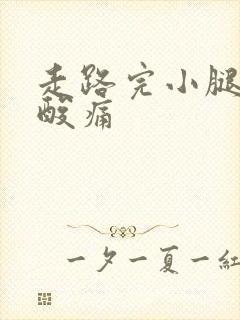 走路完小腿
酸痛
一夕一夏一紅